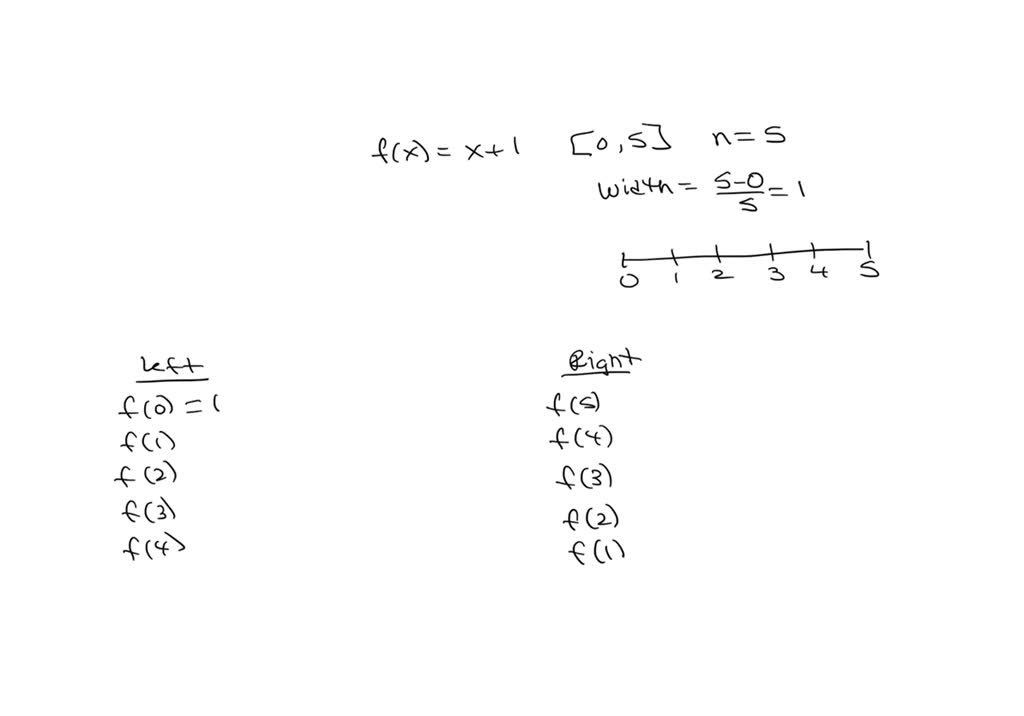 f(x) = x+1 [0,5] n=5
width = 5-0/5 = 1
0 1 2 3 4 5
Left
f(0) = 1
f(1)
f(2)
f(3)
f(4)
Right
f(5)
f(4)
f(3)
f(2)
f(1)